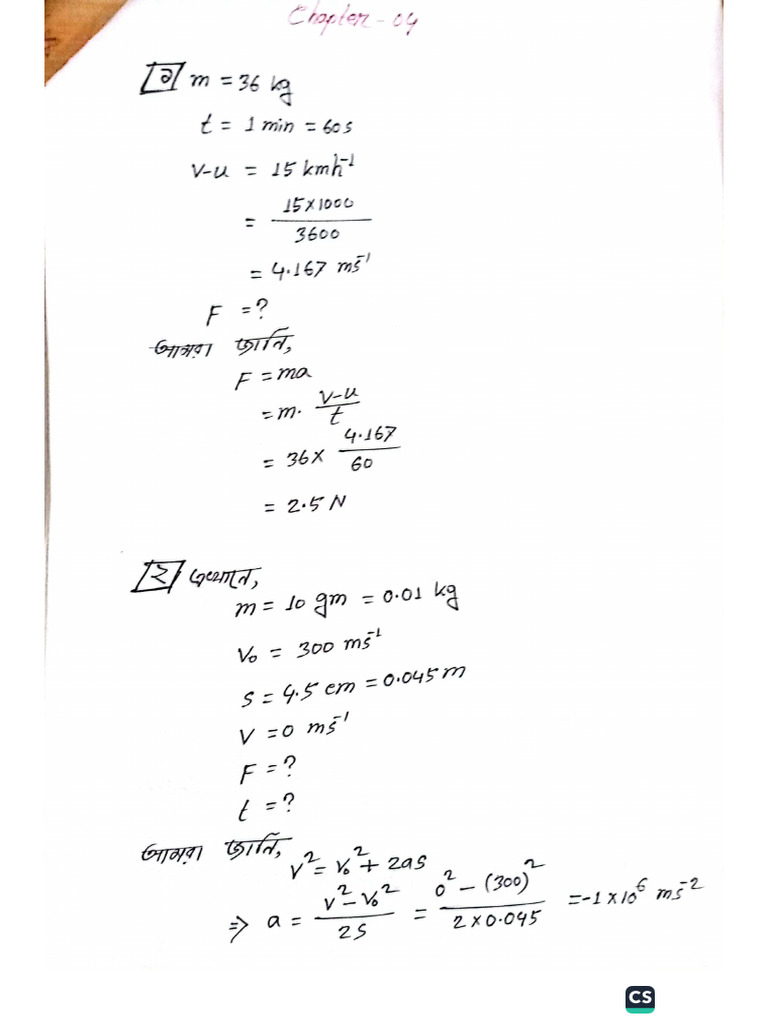 Chapter - 04
১ m = 36 kg
t = 1 min = 60s
v-u = 15 kmh⁻¹
= 15×1000 / 3600
= 4.167 ms⁻¹
F = ?
আমরা জানি,
F = ma
= m. v-u / t
= 36 × 4.167 / 60
= 2.5 N
২ এখানে,
m = 10 gm = 0.01 kg
V₀ = 300 ms⁻¹
s = 4.5 cm = 0.045 m
V = 0 ms⁻¹
F = ?
t = ?
আমরা জানি,
v² = v₀² + 2as
⇒ a = v² - v₀² / 2s = 0² - (300)² / 2×0.045 = -1×10⁶ ms⁻²
CS